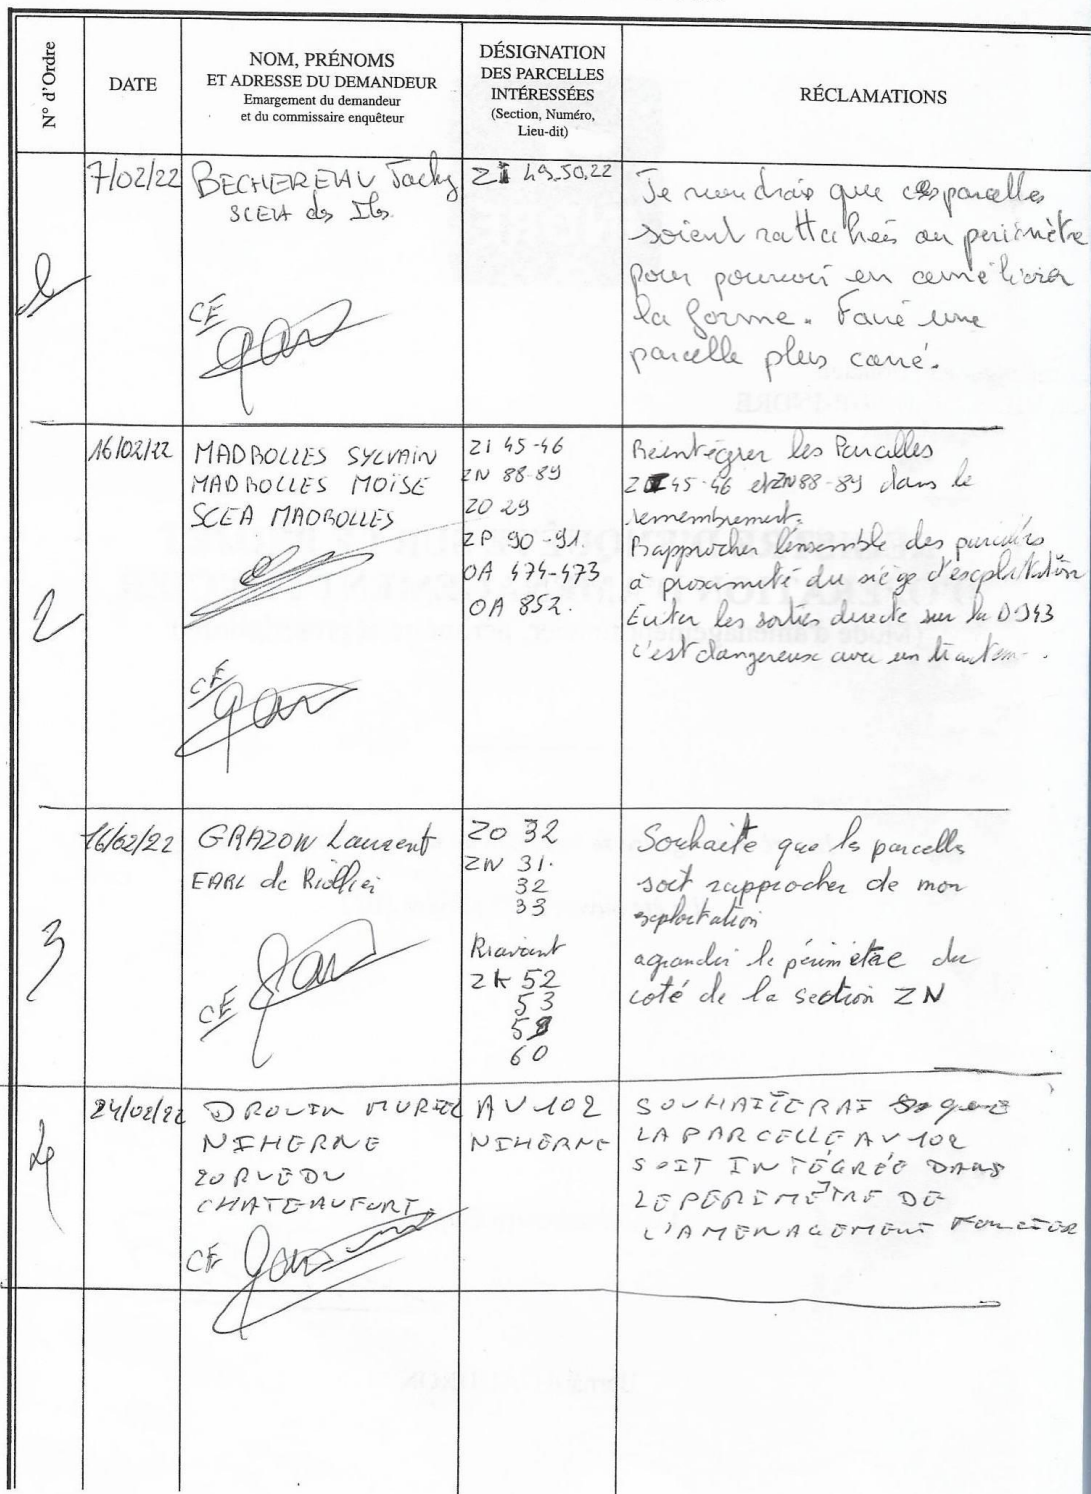 N° d'Ordre
DATE
NOM, PRÉNOMS
ET ADRESSE DU DEMANDEUR
Emargement du demandeur
et du commissaire enquêteur
DÉSIGNATION
DES PARCELLES
INTÉRESSÉES
(Section, Numéro,
Lieu-dit)
RÉCLAMATIONS
1
7/02/22
BECHEREAU Jacky
SCEA des Iles
CE
ZI 49.50.22
Je voudrais que ces parcelles
soient rattachées au périmètre
pour pouvoir en améliorer
la forme. Faire une
parcelle plus carré.
2
16/02/22
MADROLLES SYLVAIN
MADROLLES MOÏSE
SCEA MADROLLES
CE
ZI 45-46
ZN 88-89
ZO 29
ZP 90-91.
OA 474-473
OA 852.
Réintégrer les Parcelles
ZI 45-46 et ZN 88-89 dans le
remembrement.
Rapprocher l'ensemble des
à proximité du siège d'exploitation
Eviter les sorties directe sur la D943
c'est dangereux avec un tracteur.
3
16/02/22
GRAZON Laurent
EARL de
CE
ZO 32
ZN 31.
32
33
ZK 52
53
60
Souhaite que les parcelles
soit rapprocher de mon
exploitation
agrandir le périmètre du
coté de la section ZN
4
24/02/22
DROUIN MURIEL
NIHERNE
20 RUE DU
CHATEAUFORT.
CE
AV 102
NIHERNE
SOUHAITERAI que
LA PARCELLE AV 102
SOIT INTÉGRÉE DANS
LE PERIMÈTRE DE
L'AMENAGEMENT FONCIER